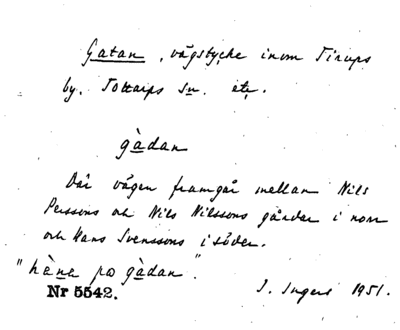 Gatan, vägstycke inom Tirups
by. Tottarps sn. etc.
gàdan
Där vägen framgår mellan Nils
Perssons och Nils Nilssons gårdar i norr
och Hans Svenssons i söder.
"hène po gàdan".
Nr 5542. I. Ingers 1951.